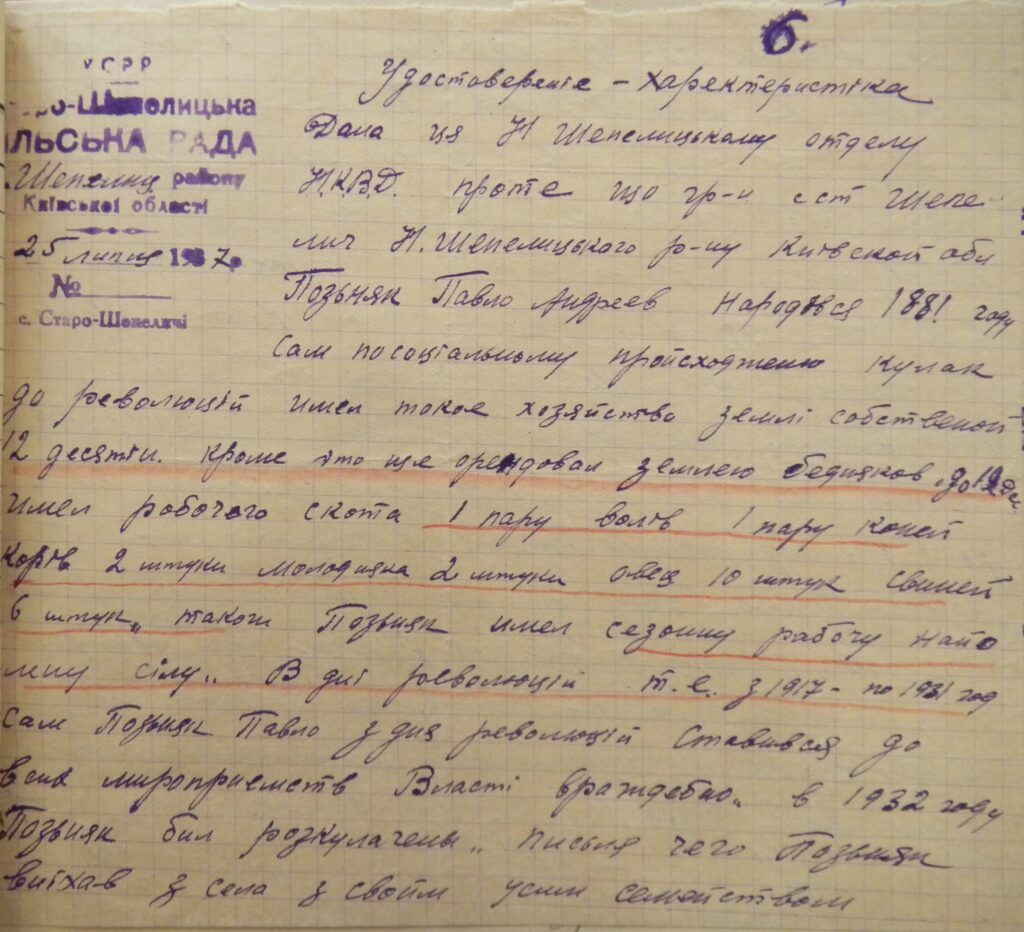 6.
УСРР
-Шепелицька
ІЛЬСЬКА РАДА
Шепелиц району
Київської області
25 липня 1937 р
№
с. Старо-Шепеличі
Удостоверение – характеристіка
Дана ця Н Шепелицькому отделу
Н.К.В.Д. проте що гр-н с ст Шепе-
лич Н. Шепелицького р-ну Київской обл
Позьняк Павло Андреев народився 1881 году
Сам посоціальному происходженю кулак
до революцій имел такое хозяйство землі собственой
12 десятін. кроме ище орендовал землею бедняков до
имел робочого скота 1 пару волів 1 пару коней
Корів 2 штуки молодняка 2 штуки овец 10 штук свиней
6 штук,, також Позьняк имел сезонну рабочу найо
мну сілу,, В дні революцій т.е. з 1917 – по 1931 год
Сам Позьняк Павло з дня революцій ставився до
всих мироприемств Власті враждебно,, в 1932 году
Позьняк бил розкулачены,, письля чего Позьняк
виїха-в з села з своїм усим семейством